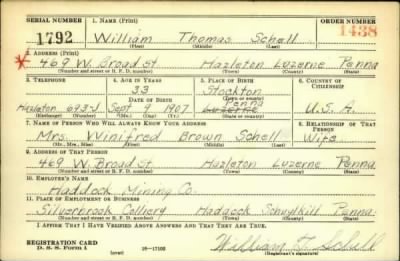 SERIAL NUMBER 1. NAME (Print) ORDER NUMBER
1792 William Thomas Schell 1438
(First) (Middle) (Last)
2. ADDRESS (Print)
469 W. Broad St. Hazleton Luzerne Penna
(Number and street or R. F. D. number) (Town) (County) (State)
3. TELEPHONE 4. AGE IN YEARS 5. PLACE OF BIRTH 6. COUNTRY OF CITIZENSHIP
33 Stockton
DATE OF BIRTH (Town or county)
Penna
Hazleton 693J Sept 9 1907 Luzerne U.S.A.
(Exchange) (Number) (Mo.) (Day) (Yr.) (State or country)
7. NAME OF PERSON WHO WILL ALWAYS KNOW YOUR ADDRESS 8. RELATIONSHIP OF THAT PERSON
Mrs. Winifred Brown Schell Wife
(Mr., Mrs., Miss) (First) (Middle) (Last)
9. ADDRESS OF THAT PERSON
469 W. Broad St. Hazleton Luzerne Penna
(Number and street or R. F. D. number) (Town) (County) (State)
10. EMPLOYER'S NAME
Haddock Mining Co.
11. PLACE OF EMPLOYMENT OR BUSINESS
Silverbrook Colliery Haddock Schuylkill Penna.
(Number and street or R. F. D. number) (Town) (County) (State)
I AFFIRM THAT I HAVE VERIFIED ABOVE ANSWERS AND THAT THEY ARE TRUE.
REGISTRATION CARD
D. S. S. Form 1 (over) 16—17105 William T. Schell
(Registrant's signature)